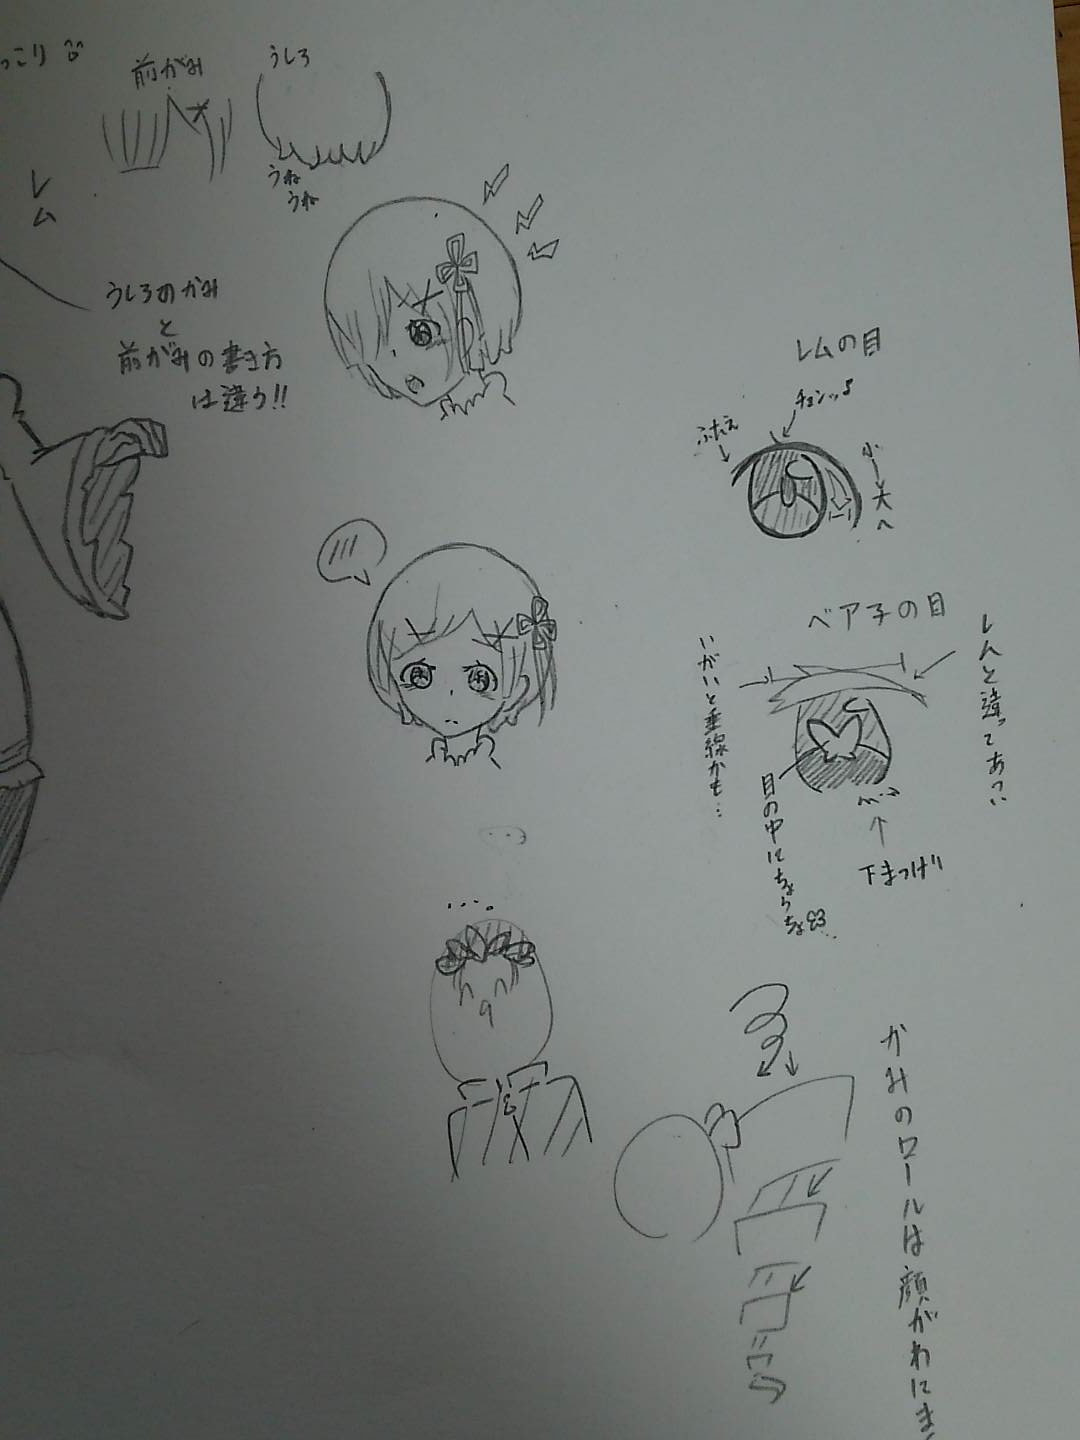 っこり
前がみ
うしろ
うね
うね
レム
うしろのかみ
と
前がみの書き方
は違う!!
レムの目
チョンッ♪
ふたえ
小→大へ
ベア子の目
レムと違ってあつい
いがいと垂線かも…
目の中にちょうちょ
下まつげ!!
かみのロールは顔がわにま